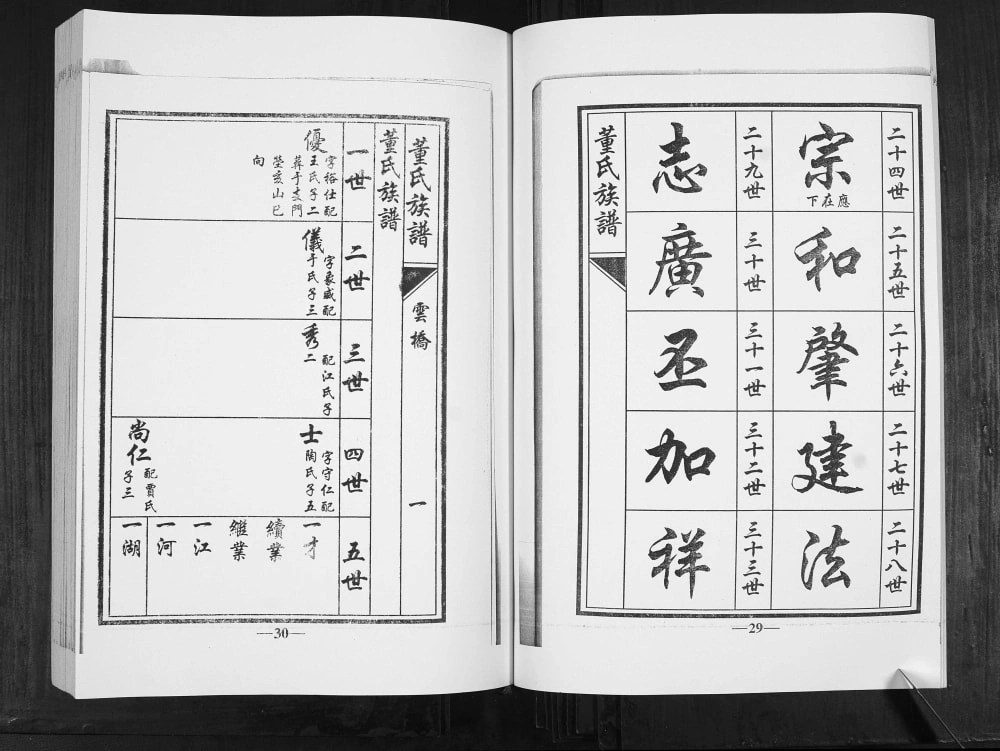 二十四世
宗
應在下
二十五世
和
二十六世
肇
二十七世
建
二十八世
法
二十九世
志
三十世
廣
三十一世
丕
三十二世
加
三十三世
祥
董氏族譜
—29—
董氏族譜
雲橋
一
董氏族譜
一世
優
字裕仕配
王氏子二
葬于支門
塋亥山巳
向
二世
儀
字象威配
于氏子三
三世
秀
配江氏子
二
四世
士
字守仁配
陶氏子五
尚仁
配賈氏
子三
五世
一才
續業
繼業
一江
一河
一湖
—30—